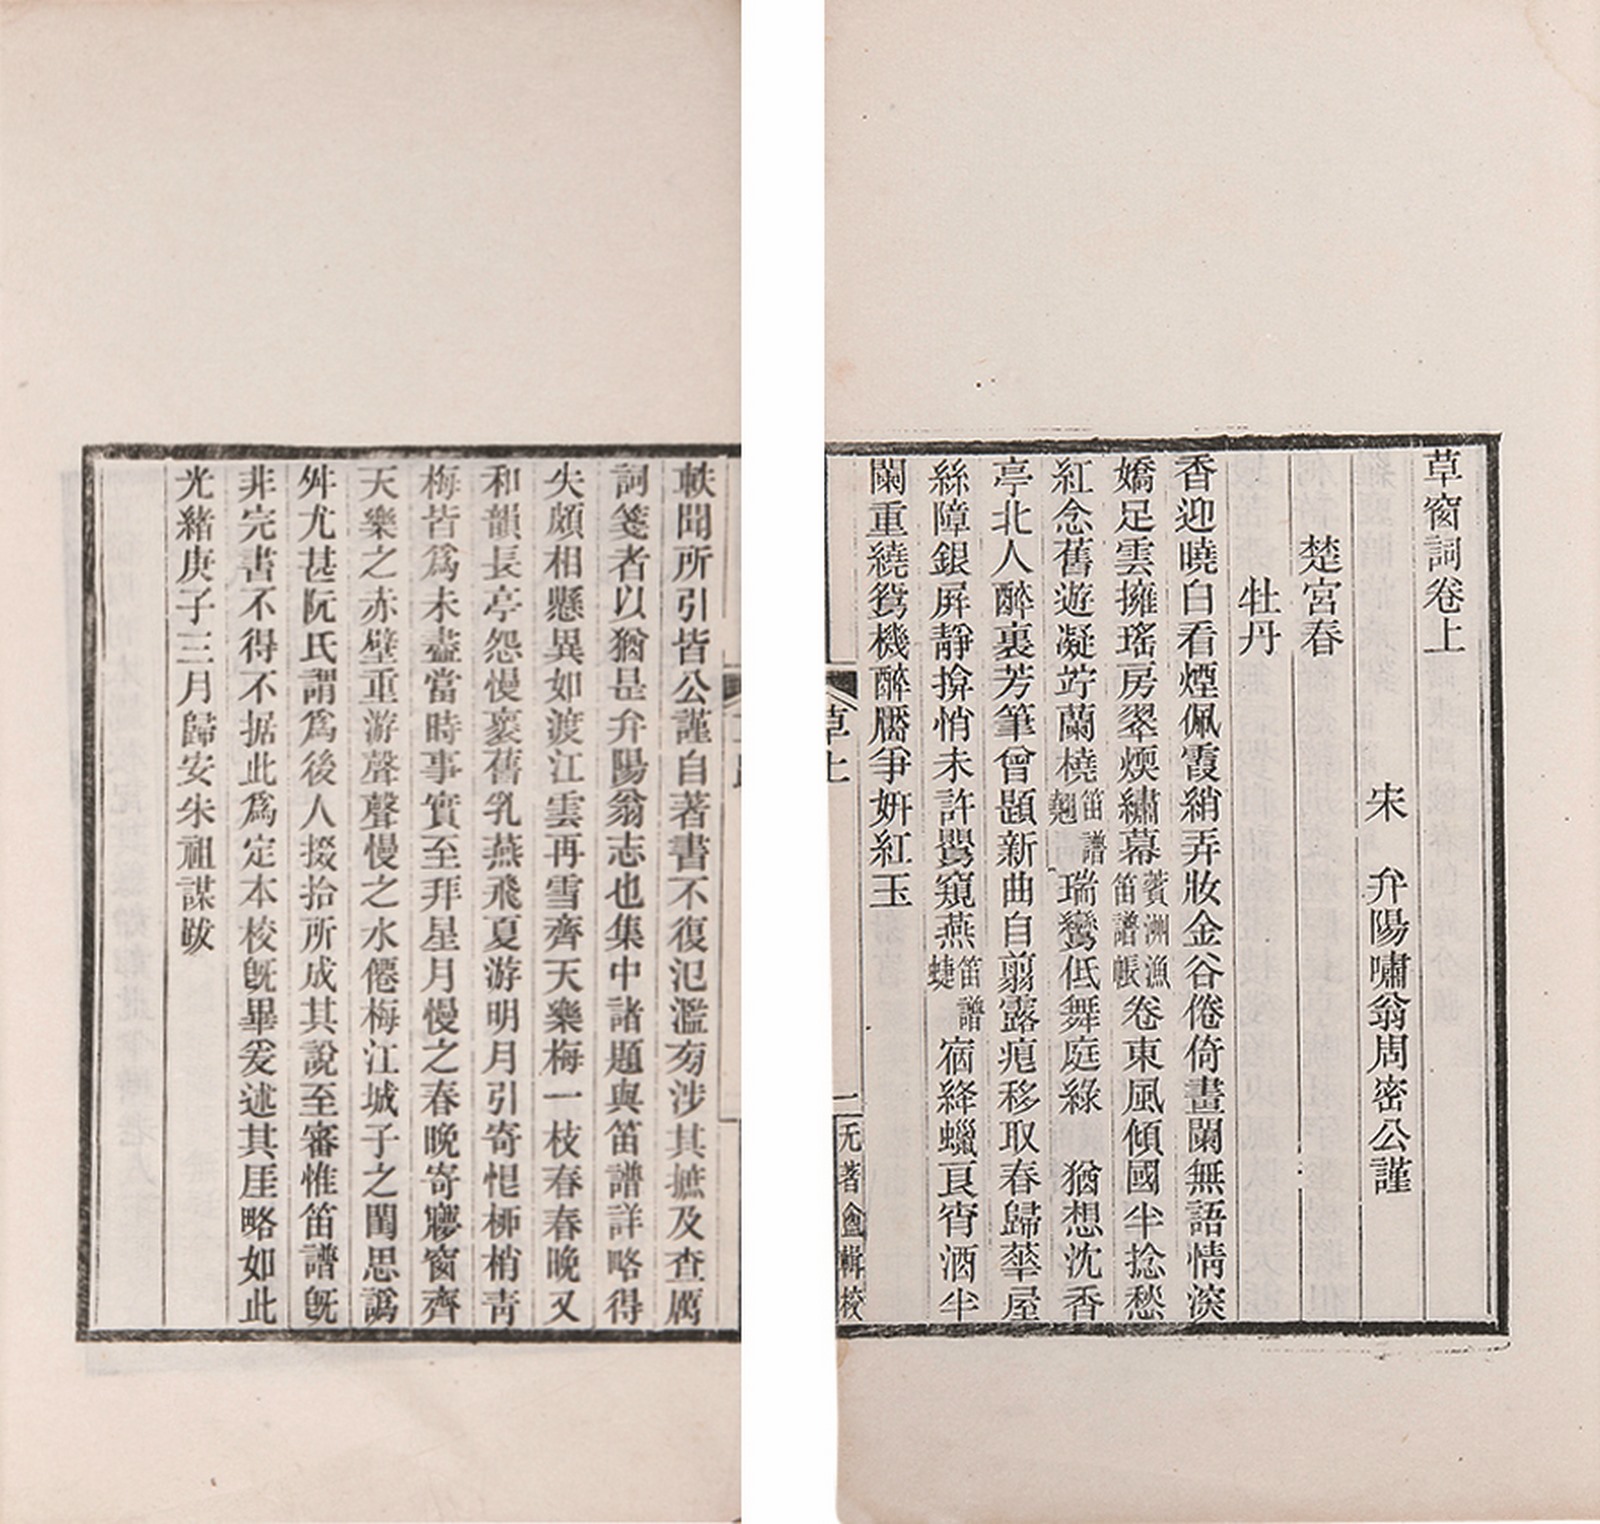 草窗詞卷上
宋　弁陽嘯翁周密公謹
楚宮春
牡丹
香迎曉白看煙佩霞綃弄妝金谷倦倚畫闌無語情深
嬌足雲擁瑤房翠煗繡幕蘋洲漁笛譜帳卷東風傾國半捻愁
紅念舊遊凝竚蘭橈笛譜翹瑞鸞低舞庭綠　猶想沈香
亭北人醉裏芳筆曾題新曲自翦露痕移取春歸華屋
絲障銀屏靜揜悄未許鸎窺燕笛譜蜨宿絳蠟良宵酒半
闌重繞鴛機醉靨爭妍紅玉
草上
一
无著盦輯校
軼聞所引皆公謹自著書不復氾濫㫄涉其摭及查厲
詞箋者以猶是弁陽翁志也集中諸題與笛譜詳略得
失頗相懸異如渡江雲再雪齊天樂梅一枝春春晚又
和韻長亭怨慢裏舊乳燕飛夏游明月引寄恨柳梢青
梅皆爲未盡當時事實至拜星月慢之春晚寄㝱窗齊
天樂之赤壁重游聲聲慢之水僊梅江城子之閨思譌
舛尤甚阮氏謂爲後人掇拾所成其說至審惟笛譜旣
非完書不得不据此爲定本校旣畢爰述其厓略如此
光緒庚子三月歸安朱祖謀跋